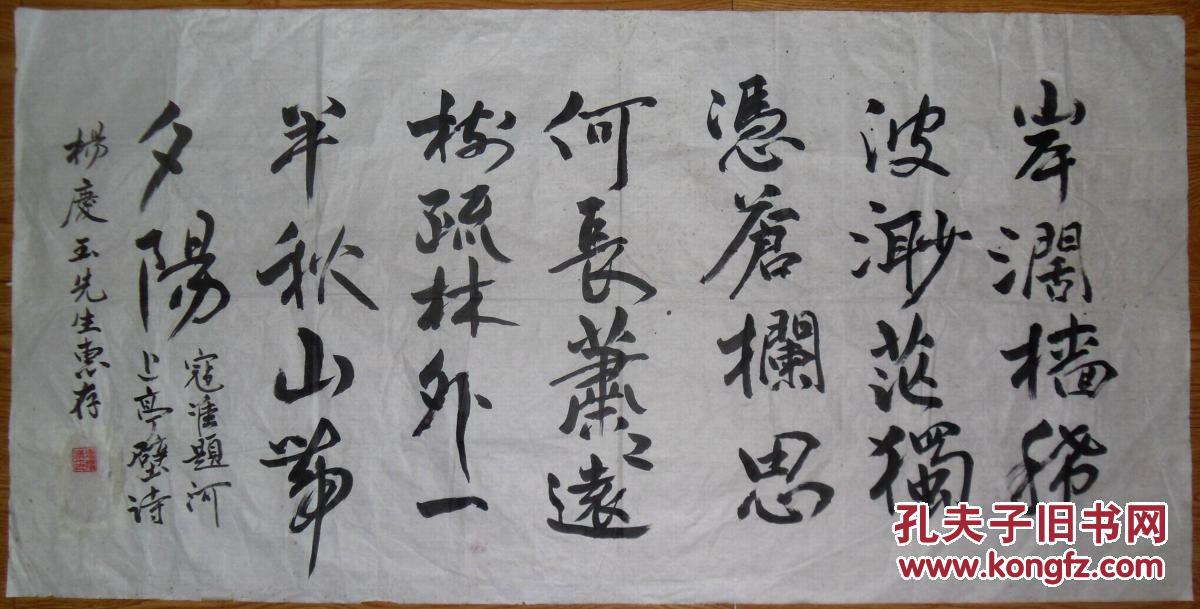 岸濶檣稀
波渺茫獨
憑蒼欄思
何長蕭〻遠
樹疏林外一
半秋山帶
夕陽
寇準題河
上亭壁诗
楊慶玉先生惠存
孔夫子旧书网
www.kongfz.com